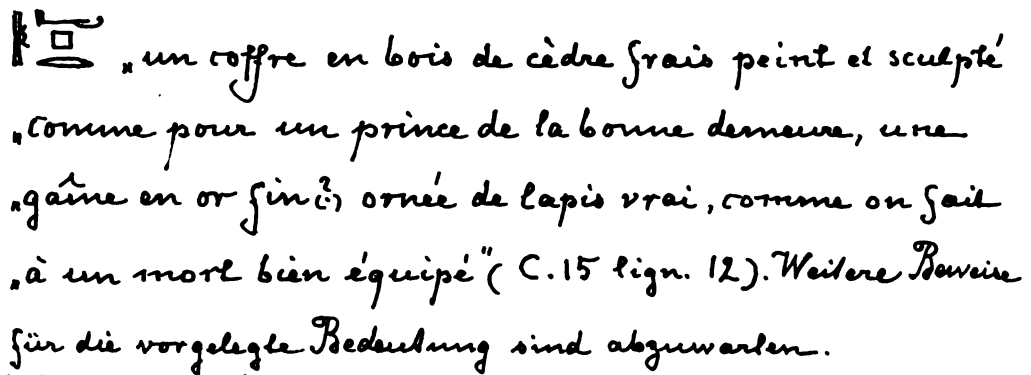 „un coffre en bois de cèdre frais peint et sculpté
„comme pour un prince de la bonne demeure, une
„gaîne en or fin(?) ornée de lapis vrai, comme on fait
„à un mort bien équipé" (C. 15 lign. 12). Weitere Beweise
für die vorgelegte Bedeutung sind abzuwarten.